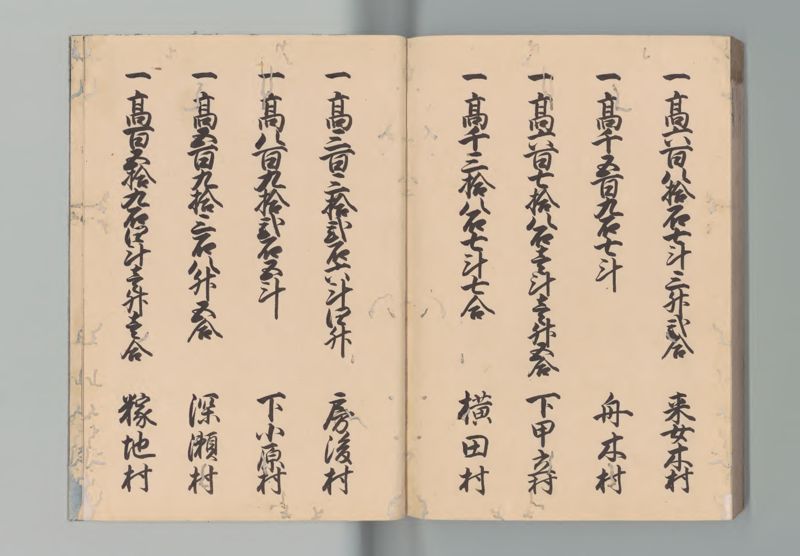 一 高六百八拾石七斗三升弐合 来女木村
一 高千五百九石七斗 舟木村
一 高六百七拾八石壱斗壱升五合 下甲立村
一 高千三拾八石七斗七合 横田村
一 高三百三拾弐石六斗四升 房後村
一 高八百九拾弐石五斗 下小原村
一 高五百九拾三石八升五合 深瀬村
一 高百五拾九石四斗壱升壱合 糘地村